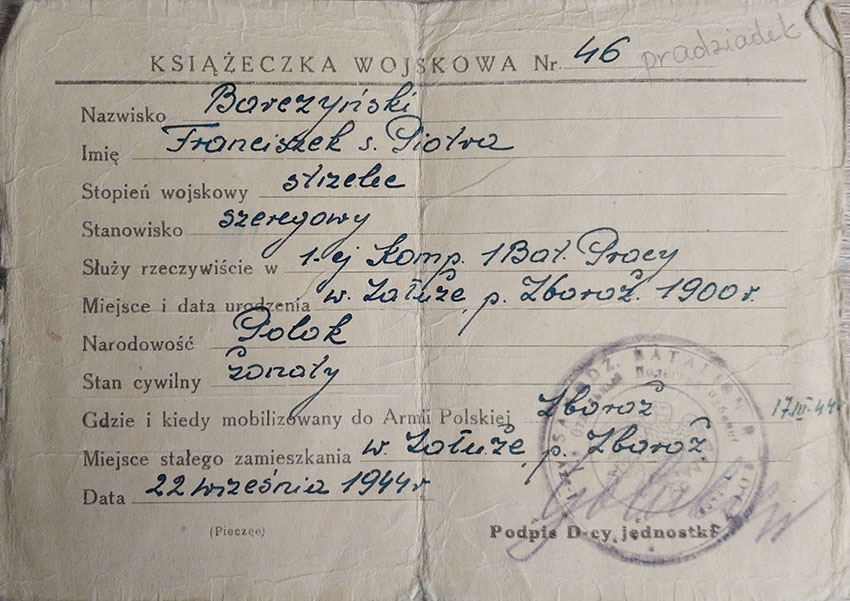 KSIĄŻECZKA WOJSKOWA Nr 46 pradziadek
Nazwisko Barczyński
Imię Franciszek s. Piotra
Stopień wojskowy strzelec
Stanowisko szeregowy
Służy rzeczywiście w 1-ej Komp. 1 Bat. Pracy
Miejsce i data urodzenia w. Załuże, p. Zbaraż. 1900 r.
Narodowość Polak
Stan cywilny żonaty
Gdzie i kiedy mobilizowany do Armii Polskiej Zbaraż 17.III.44r
Miejsce stałego zamieszkania w. Załuże, p. Zbaraż
Data 22 września 1944r
(Pieczęć)
Podpis D-cy jednostki
BATALION